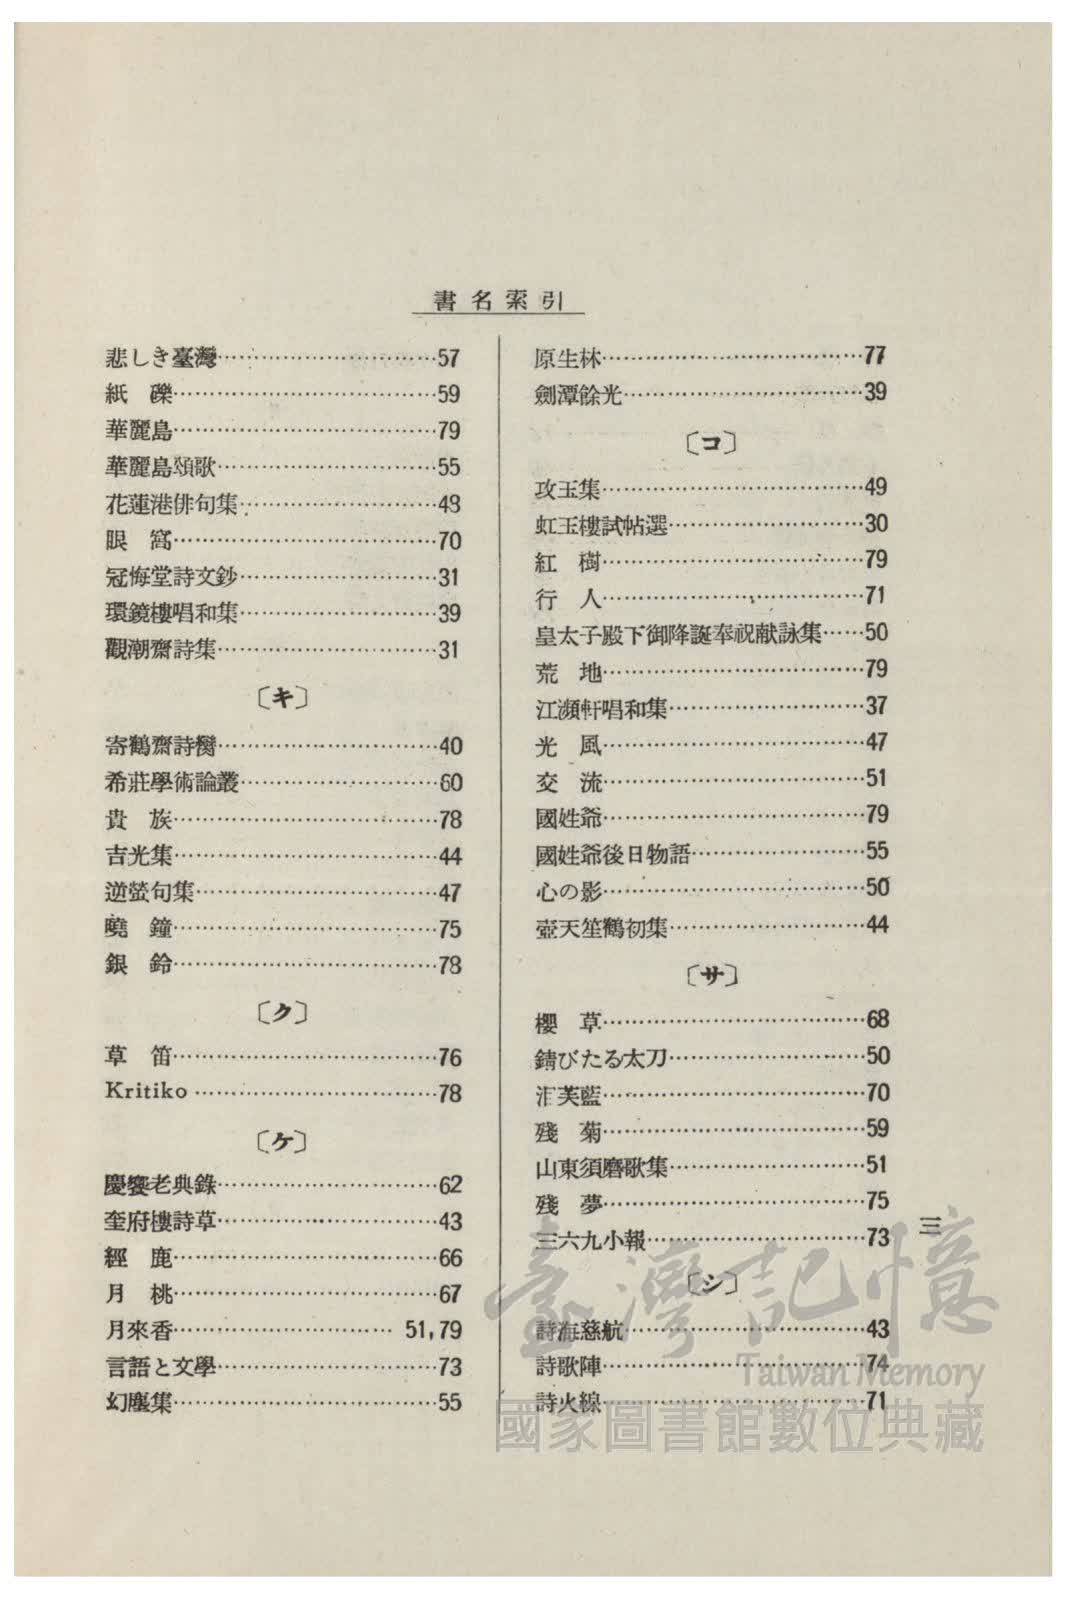 書名索引
悲しき臺灣…………………………57
紙　礫…………………………59
華麗島…………………………79
華麗島頌歌…………………………55
花蓮港俳句集…………………………48
眼　窩…………………………70
冠悔堂詩文鈔…………………………31
環鏡樓唱和集…………………………39
觀潮齋詩集…………………………31
〔キ〕
寄鶴齋詩臠…………………………40
希莊學術論叢…………………………60
貴　族…………………………78
吉光集…………………………44
逆螢句集…………………………47
曉　鐘…………………………75
銀　鈴…………………………78
〔ク〕
草　笛…………………………76
Kritiko…………………………78
〔ケ〕
慶饗老典錄…………………………62
奎府樓詩草…………………………43
經　鹿…………………………66
月　桃…………………………67
月來香………………………… 51,79
言語と文學…………………………73
幻塵集…………………………55
原生林…………………………77
劍潭餘光…………………………39
〔コ〕
攻玉集…………………………49
虹玉樓試帖選…………………………30
紅　樹…………………………79
行　人…………………………71
皇太子殿下御降誕奉祝献詠集……50
荒　地…………………………79
江瀕軒唱和集…………………………37
光　風…………………………47
交　流…………………………51
國姓爺…………………………79
國姓爺後日物語…………………………55
心の影…………………………50
壺天笙鶴初集…………………………44
〔サ〕
櫻　草…………………………68
錆びたる太刀…………………………50
泪芙藍…………………………70
殘　菊…………………………59
山東須磨歌集…………………………51
殘　夢…………………………75
三六九小報…………………………73
〔シ〕
詩海慈航…………………………43
詩歌陣…………………………74
詩火線…………………………71
三
臺灣記憶
Taiwan Memory
國家圖書館數位典藏